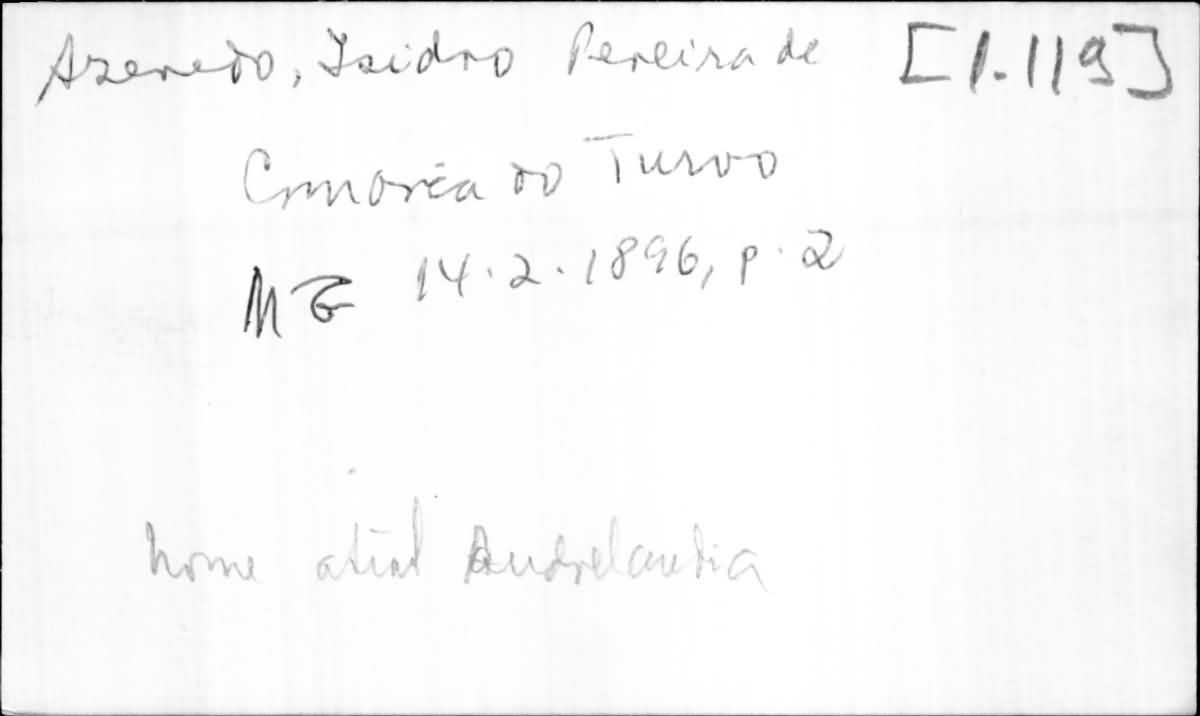 Azeredo, Isidro Pereira de [1.119]
Comarca do Turvo
MG 14.2.1896, p.2
nome atual Andrelandia